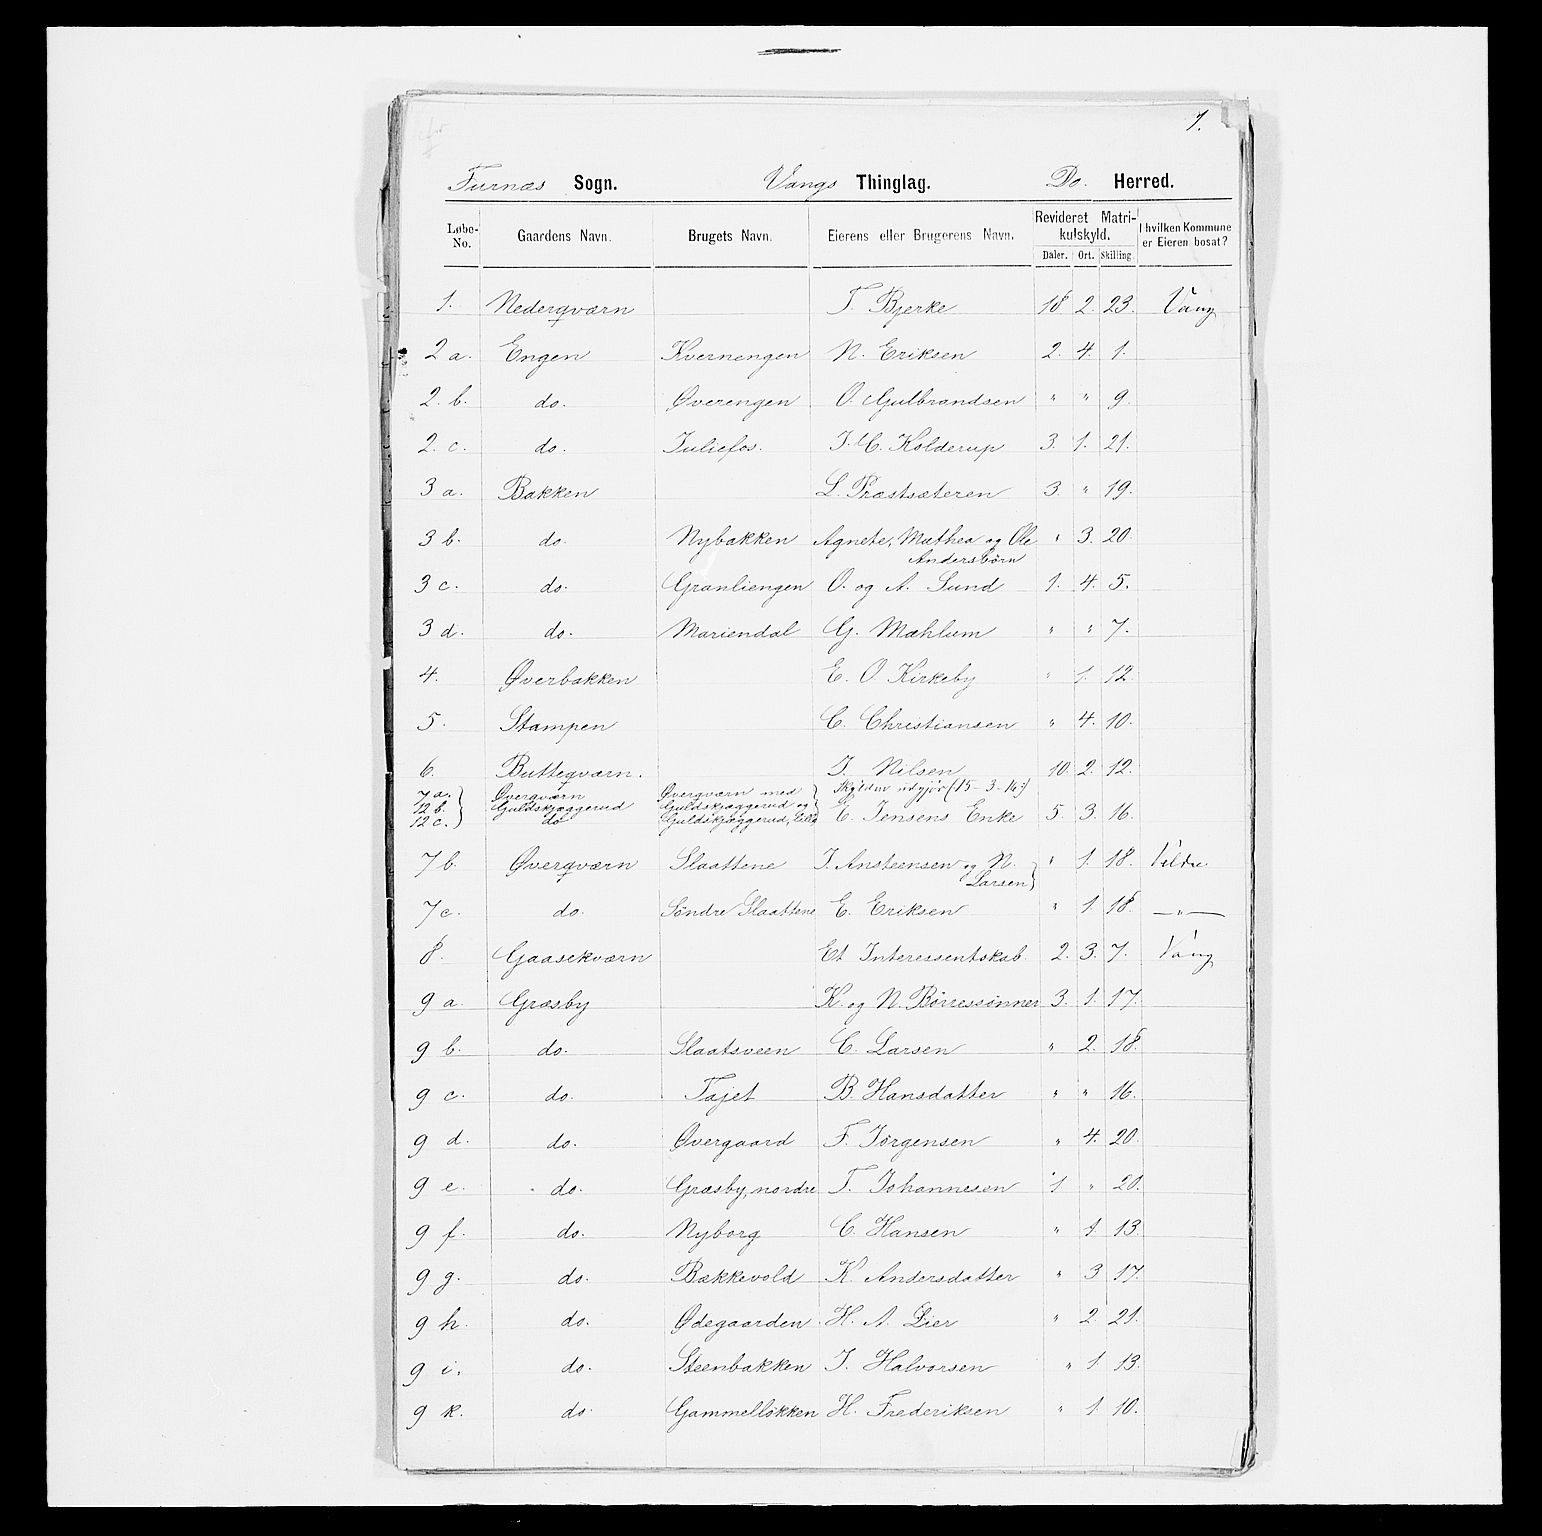 1.
Furnæs Sogn. Vangs Thinglag. Do. Herred.
Løbe-No. Gaardens Navn. Brugets Navn. Eierens eller Brugerens Navn. Revideret Matri-kulskyld. Daler. Ort. Skilling. I hvilken Kommune er Eieren bosat?
1. Nederqværn T. Bjerke 18 2. 23. Vang
2 a. Engen Kvernengen N. Eriksen 2. 4. 1.
2. b. do. Øverengen O. Gulbrandsen " " 9.
2. c. do. Juliefos. J. C. Kolderup 3. 1. 21.
3 a. Bakken L. Præstsæteren 3. " 19.
3 b. do. Nybakken Agnete, Mathea og Ole " 3. 20.
Andersbørn
3 c. do. Granliengen O. og A. Sund 1. 4. 5.
3 d. do. Mariendal G. Mæhlum " " 7.
4. Øverbakken E. O. Kirkeby " 1. 12.
5. Stampen C. Christiansen " 4. 10.
6. Butteqværn. J. Nilsen 10. 2. 12.
7 a. Øverqværn Øverqværn med Skylden udgjør (15-3-16)
12 b. Guldskjæggerud Guldskjæggerud og E. Jensens Enke 5. 3. 16.
12 c. do Guldskjæggerud, Lille
7 b. Øverqværn Slaattene J. Ansteensen og N. " 1. 18. Veldre
Larsen
7 c. do. Søndre Slaattene E. Eriksen " 1 18. — " —
8. Gaasekværn Et Interessentskab. 2. 3. 7. Vang
9 a. Græsby K. og N. Børressønner 3. 1. 17.
9 b. do. Slaatsveen C. Larsen " 2. 18.
9 c. do. Tajet B. Hansdatter " " 16.
9 d. do. Øvergaard F. Jørgensen " 4. 20.
9 e. do. Græsby, nordre T. Johannesen 1 " 20.
9 f. do. Nyborg C. Hansen " 1. 13.
9 g. do. Bækkevold K. Andersdatter " 3 17.
9 h. do. Ødegaarden H. A. Lier " 2. 21.
9 i. do. Steenbakken J. Halvorsen " 1 13.
9 k. do. Gammelløkken H. Frederiksen " 1 10.